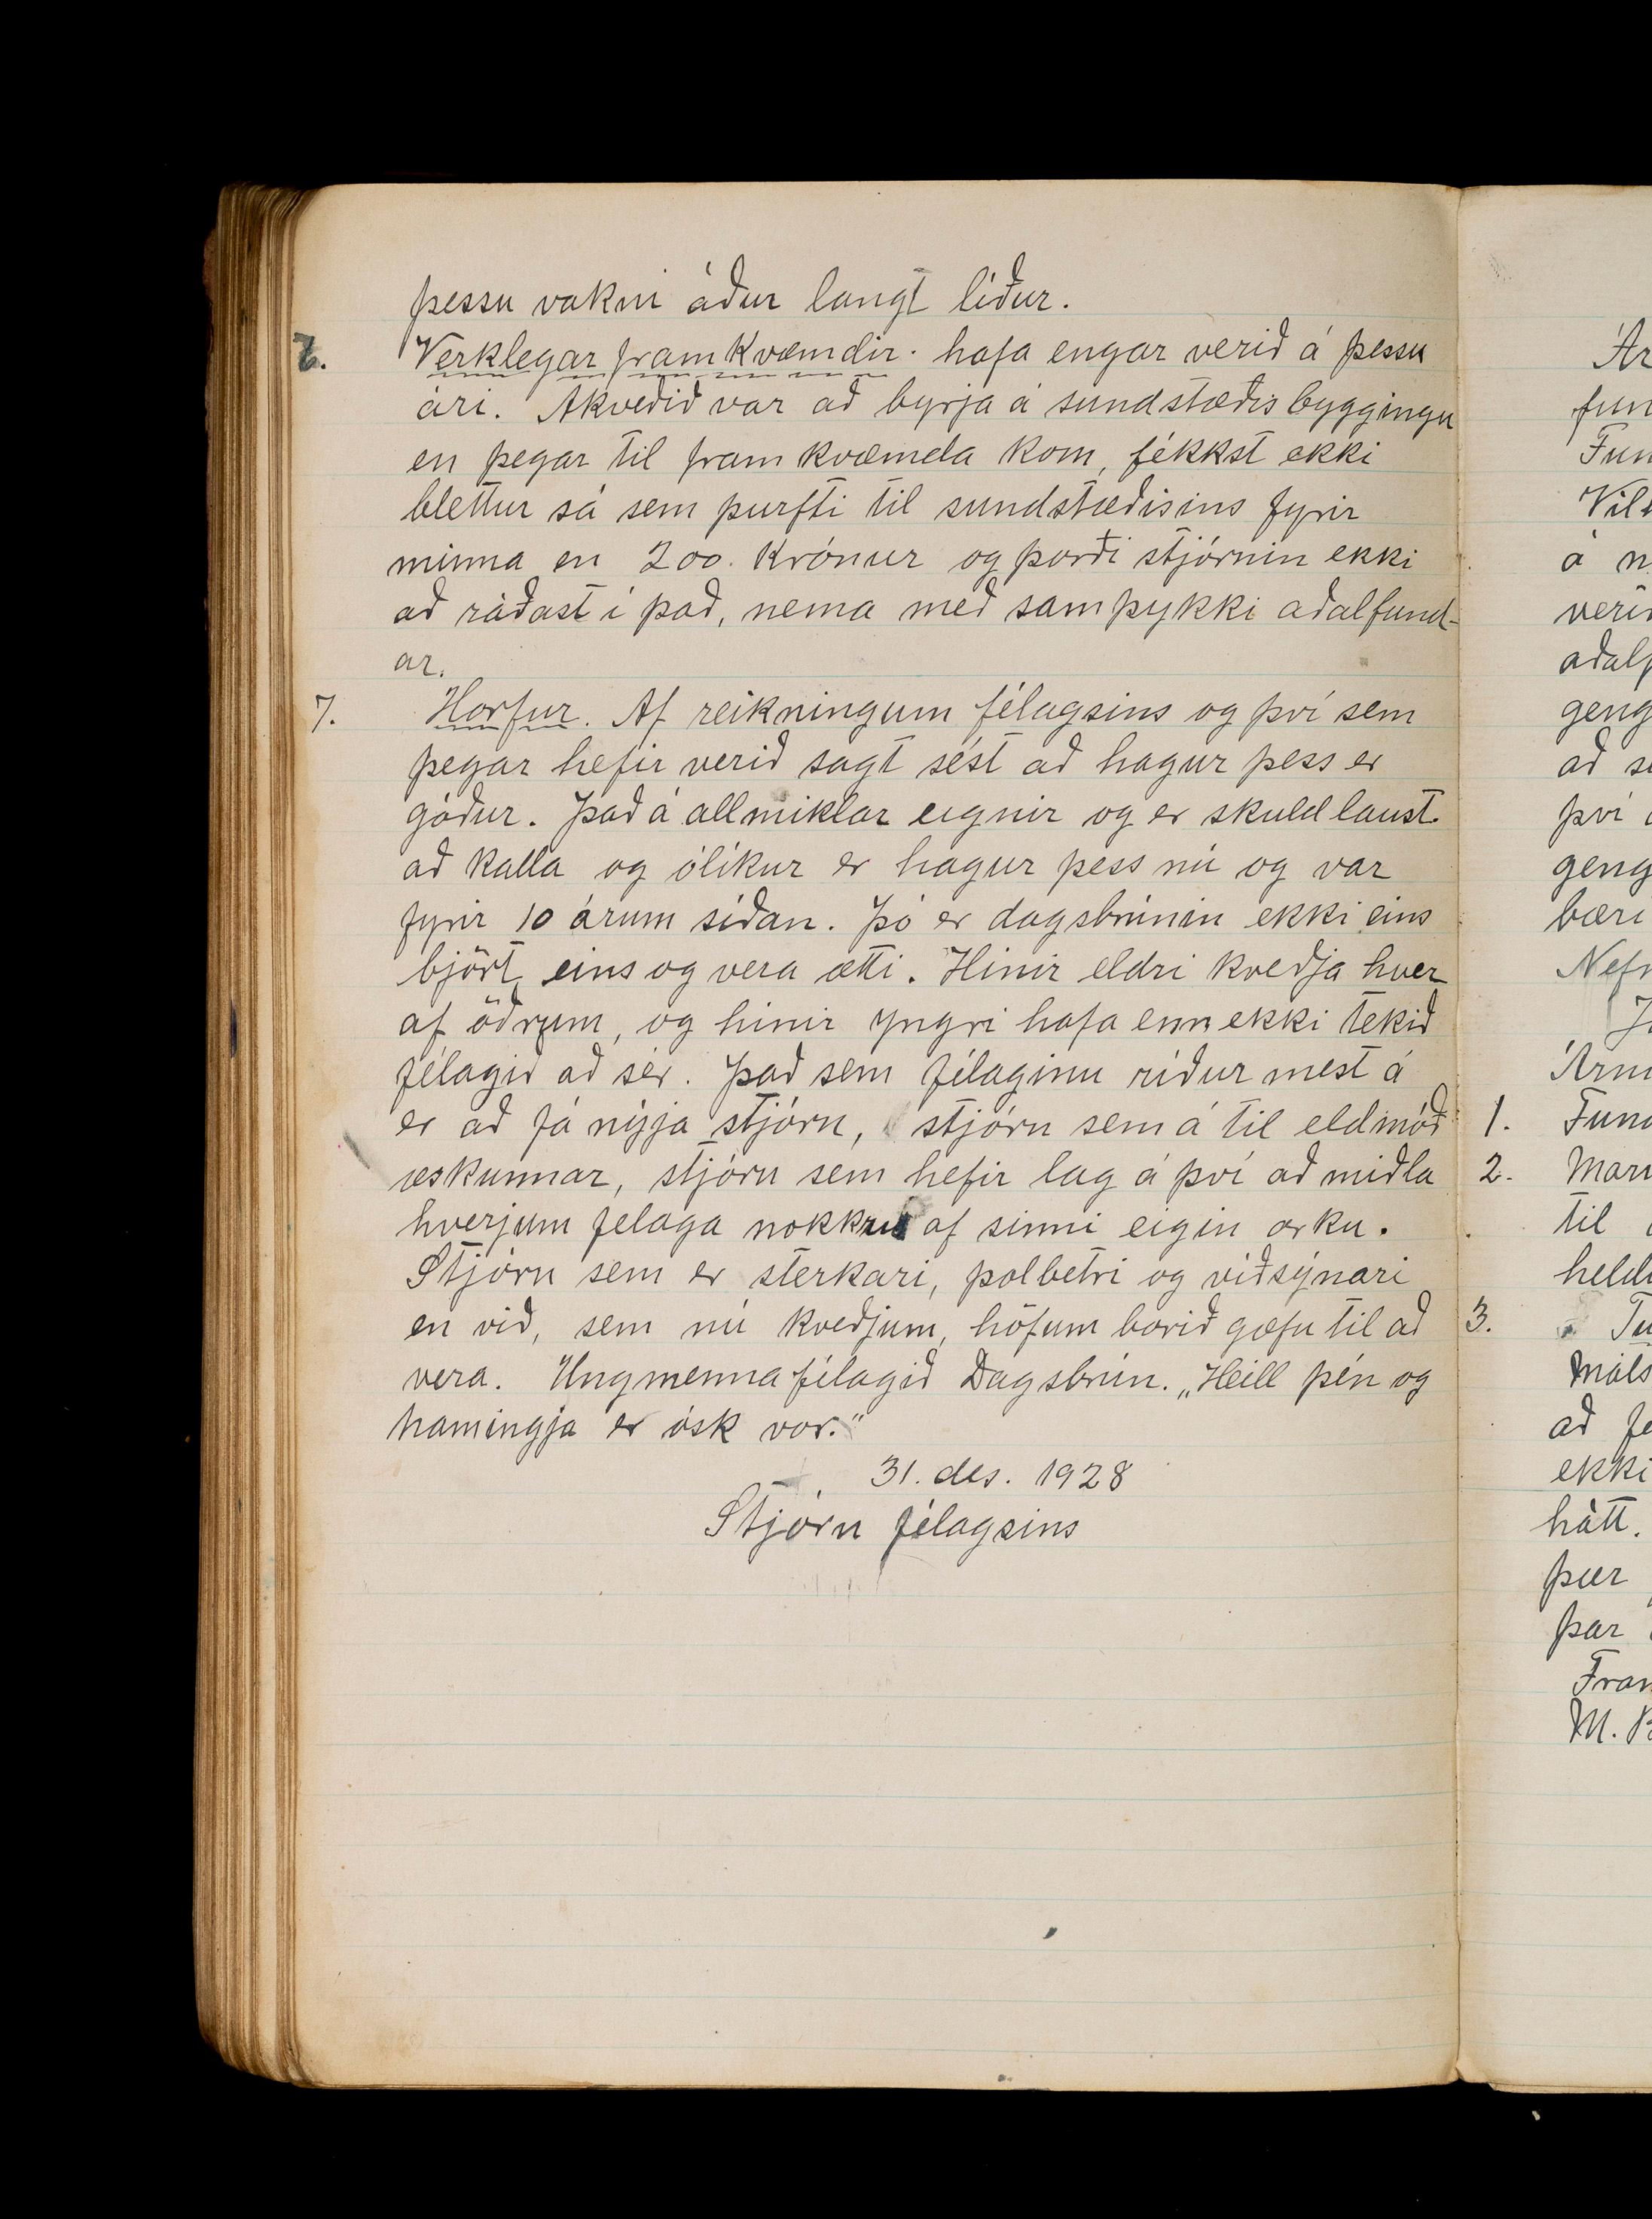 þessu vakni áður langt líður.
6. Verklegar framkvæmdir. hafa engar verið á þessu
ári. Akveðið var að byrja á sundstæðisbyggingu
en þegar til framkvæmda kom, fékkst ekki
blettur sá sem þurfti til sundstæðisins fyrir
minna en 200. Krónur og þorði stjórnin ekki
að ráðast í það, nema með samþykki aðalfund-
ar.
7. Horfur. Af reikningum félagsins og því sem
þegar hefir verið sagt sést að hagur þess er
góður. Það á allmiklar eignir og er skuldlaust.
að kalla og ólíkur er hagur þess nú og var
fyrir 10 árum síðan. Þó er dagsbrúnin ekki eins
björt eins og vera ætti. Hinir eldri kveðja hver
af öðrum, og hinir yngri hafa enn ekki tekið
félagið að sér. Það sem félaginu ríður mest á
er að fá nýja stjórn, stjórn sem á til eldmóð
æskunnar, stjórn sem hefir lag á því að miðla
hverjum felaga nokkru af sinni eigin orku.
Stjórn sem er sterkari, þolbetri og víðsýnari
en við, sem nú kveðjum, höfum borið gæfu til að
vera. Ungmennafélagið Dagsbrún. „Heill þér og
hamingja er ósk vor."
31. des. 1928
Stjórn félagsins
Ár
fun
Fun
á
að
því
geng
bæri
1. Fund
2.
til
3.
máls
að
ekki
hátt.
þær
þar
M.